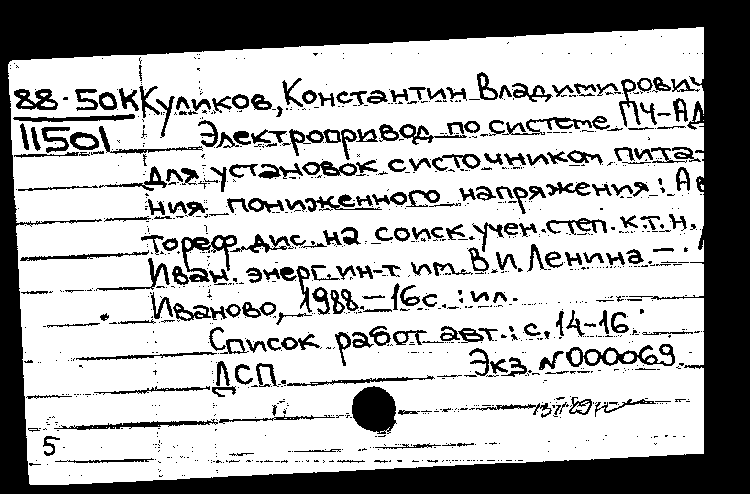 88-50К Куликов, Константин Владимирович
11501 Электропривод по системе ПЧ-АД
для установок с источником пита-
ния пониженного напряжения: Ав
тореф. дис. на соиск. учен. степ. к.т.н.
Иван. энерг. ин-т им. В.И. Ленина. —
Иваново, 1988. — 16 с. : ил.
Список работ авт.: с. 14-16.
ДСП. Экз. N 000069.
5